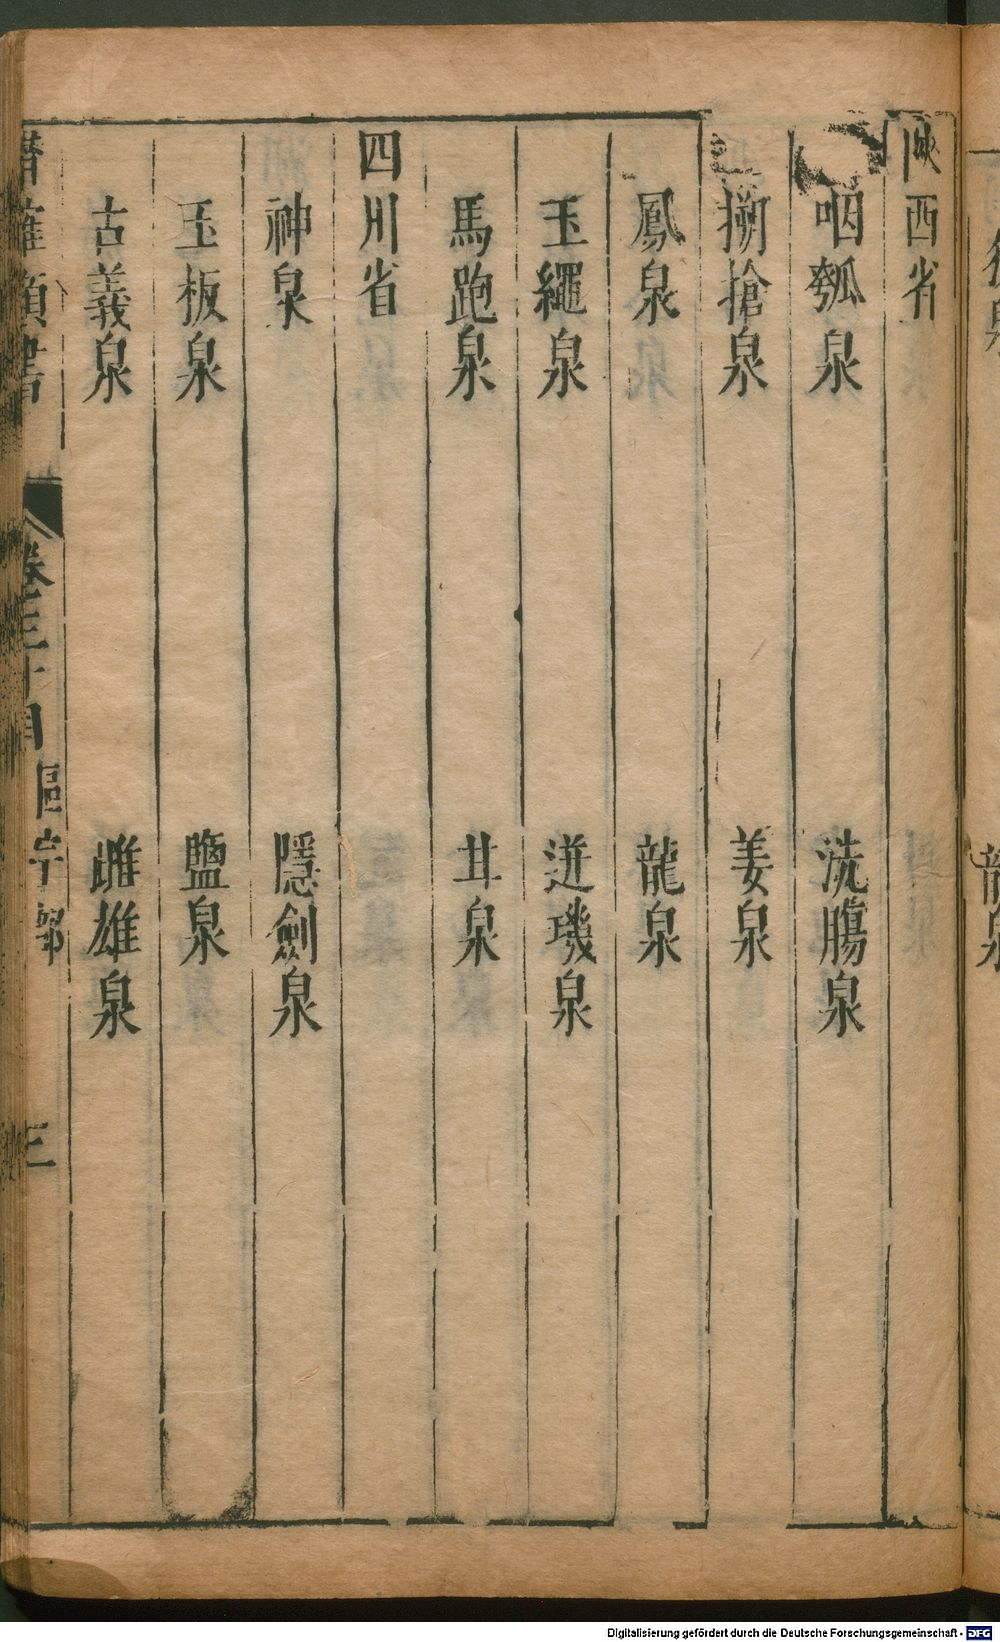 陝西省
咽瓠泉 洗腸泉
搠搶泉 姜泉
鳳泉 龍泉
玉繩泉 迸璣泉
馬跑泉 甘泉
四川省
神泉 隱劍泉
玉板泉 鹽泉
古義泉 雌雄泉
潛確類書 卷三十目 區宇部 三
龍泉
Digitalisierung gefördert durch die Deutsche Forschungsgemeinschaft - DFG